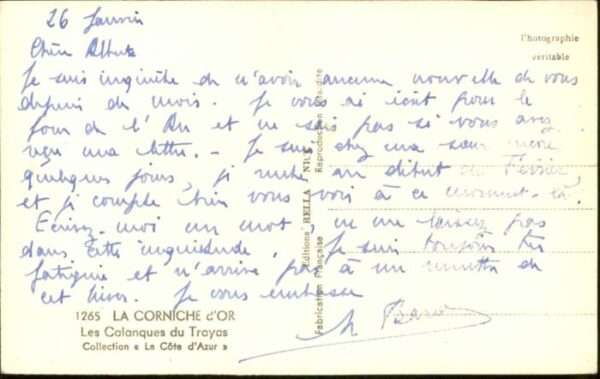 26 Janvier
l'Photographie
véritable
Chère
Je suis inquiète de n'avoir aucune nouvelle de vous
depuis des mois. Je vous ai écrit pour le
jour de l'An et ne sais pas si vous avez
reçu ma lettre. - Je suis chez ma sœur encore
quelques jours, je rentre au début de Février,
et je compte bien vous voir à ce moment-là.
Ecrivez-moi un mot, ne me laissez pas
dans cette inquiétude. Je suis toujours très
fatiguée et n'arrive pas à me remettre de
cet hiver. Je vous embrasse
1265 LA CORNICHE d'OR
Les Calanques du Trayas
Collection « La Côte d'Azur »
Editions RELLA NICE
Fabrication Française
Reproduction interdite